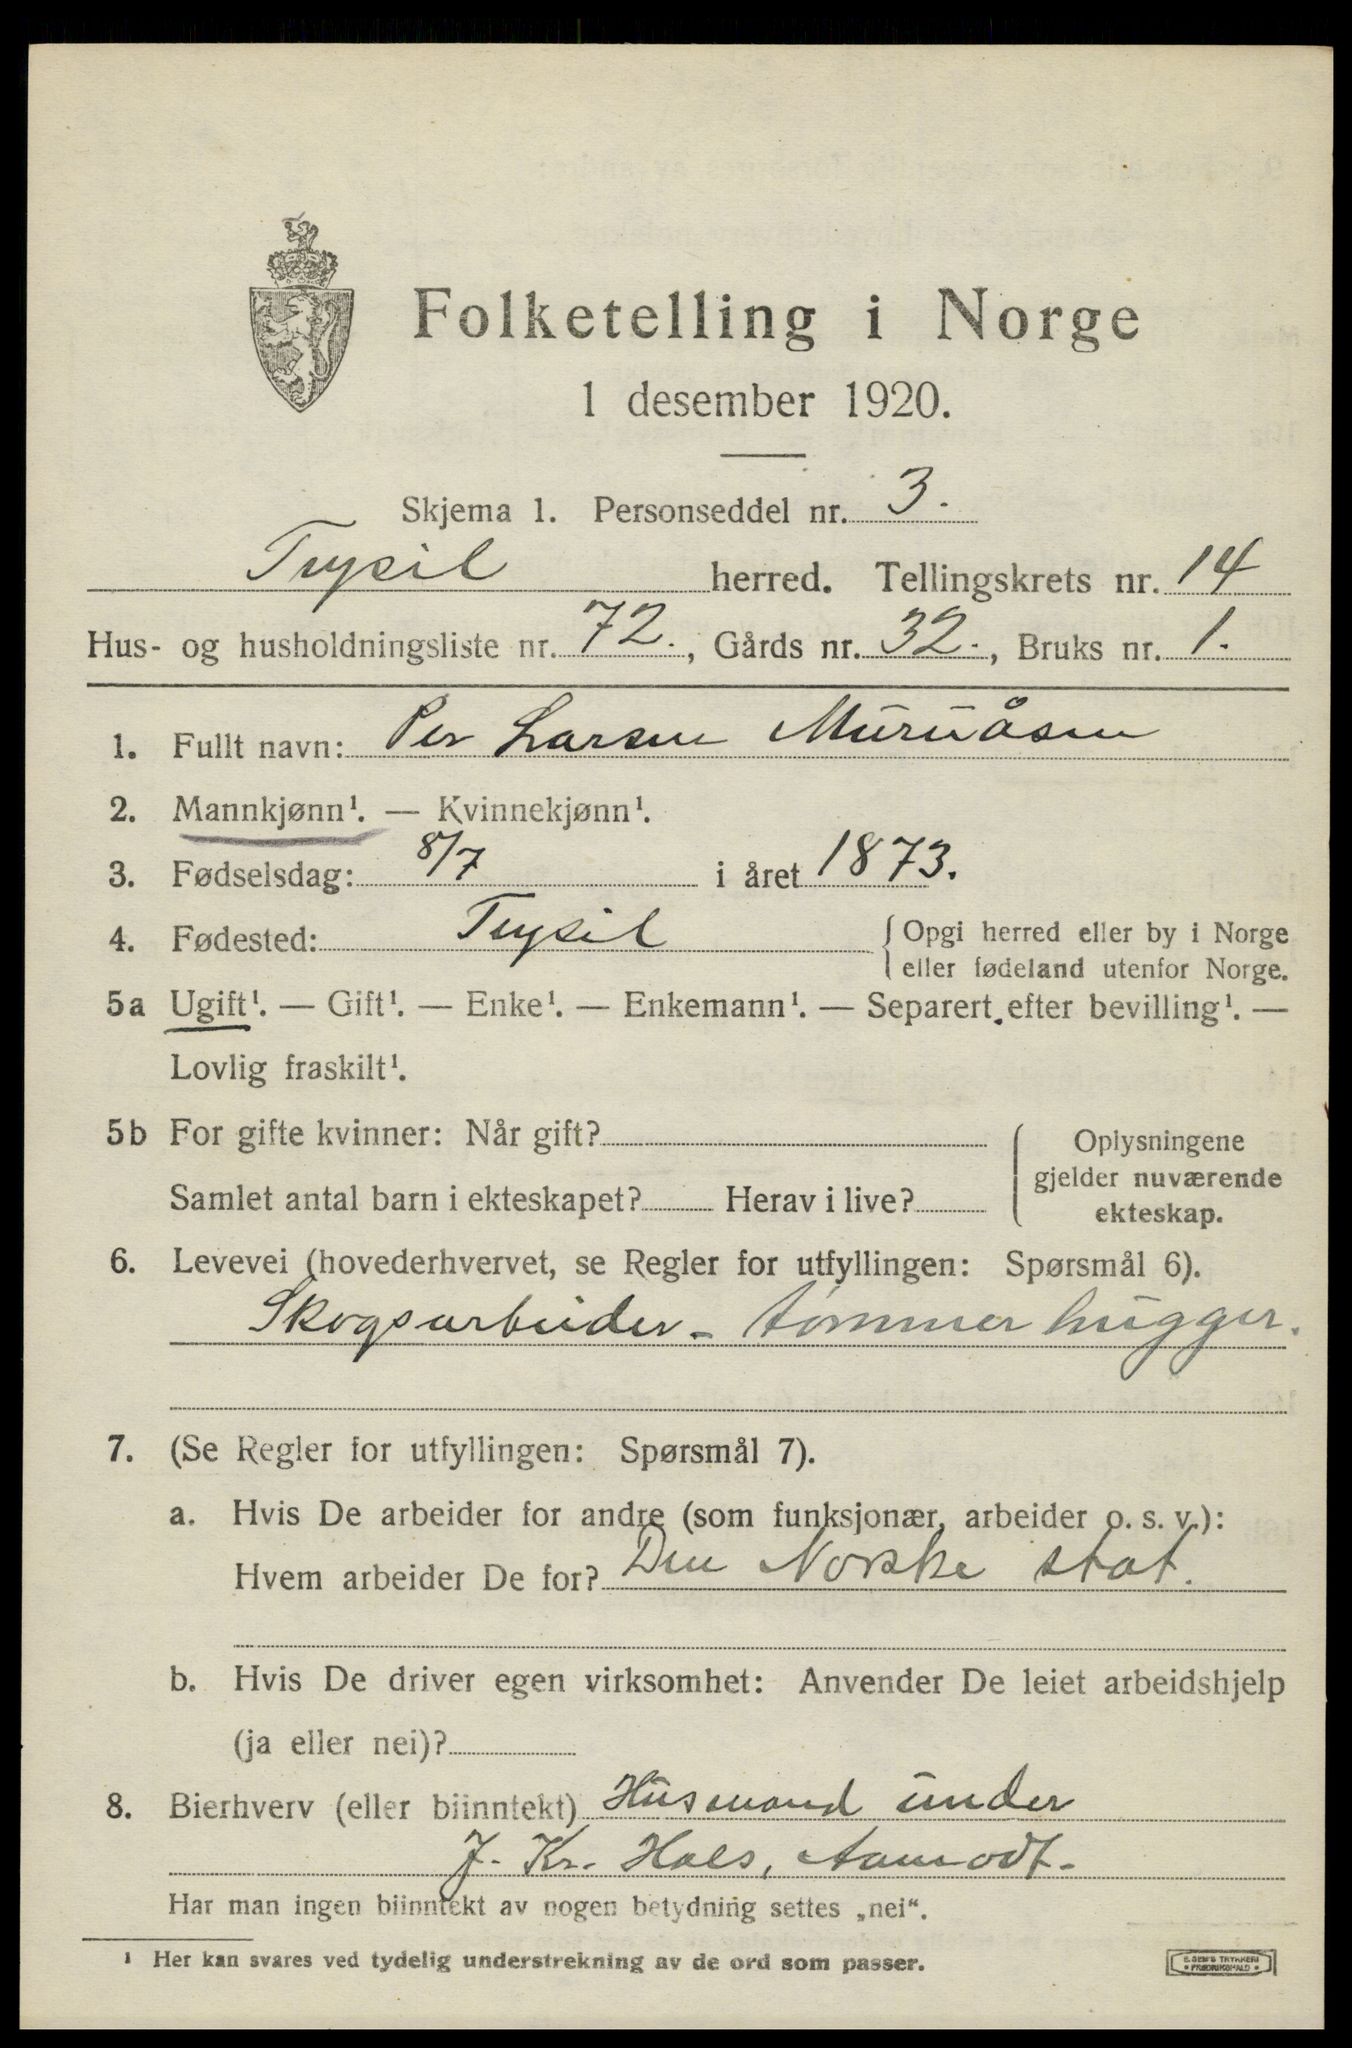 Folketelling i Norge
1 desember 1920.
Skjema 1. Personseddel nr. 3.
Trysil herred. Tellingskrets nr. 14
Hus- og husholdningsliste nr. 72., Gårds nr. 32., Bruks nr. 1.
1. Fullt navn: Per Larsen Muruåsen
2. Mannkjønn¹. — Kvinnekjønn¹.
3. Fødselsdag: 8/7 i året 1873.
4. Fødested: Trysil { Opgi herred eller by i Norge
eller fødeland utenfor Norge.
5a Ugift¹. — Gift¹. — Enke¹. — Enkemann¹. — Separert efter bevilling¹. —
Lovlig fraskilt¹.
5b For gifte kvinner: Når gift? Oplysningene
gjelder nuværende
Samlet antal barn i ekteskapet? Herav i live?
ekteskap.
6. Levevei (hovederhvervet, se Regler for utfyllingen: Spørsmål 6).
Skogsarbeider - tømmerhugger.
7. (Se Regler for utfyllingen: Spørsmål 7).
a. Hvis De arbeider for andre (som funksjonær, arbeider o. s. v.):
Hvem arbeider De for? Den Norske stat.
b. Hvis De driver egen virksomhet: Anvender De leiet arbeidshjelp
(ja eller nei)?
8. Bierhverv (eller biinntekt) Husmand under
J. Kr. Hals, Aamodt.
Har man ingen biinntekt av nogen betydning settes „nei“.
¹ Her kan svares ved tydelig understrekning av de ord som passer.
E. SEM'S TRYKKERI
FREDRIKSHALD